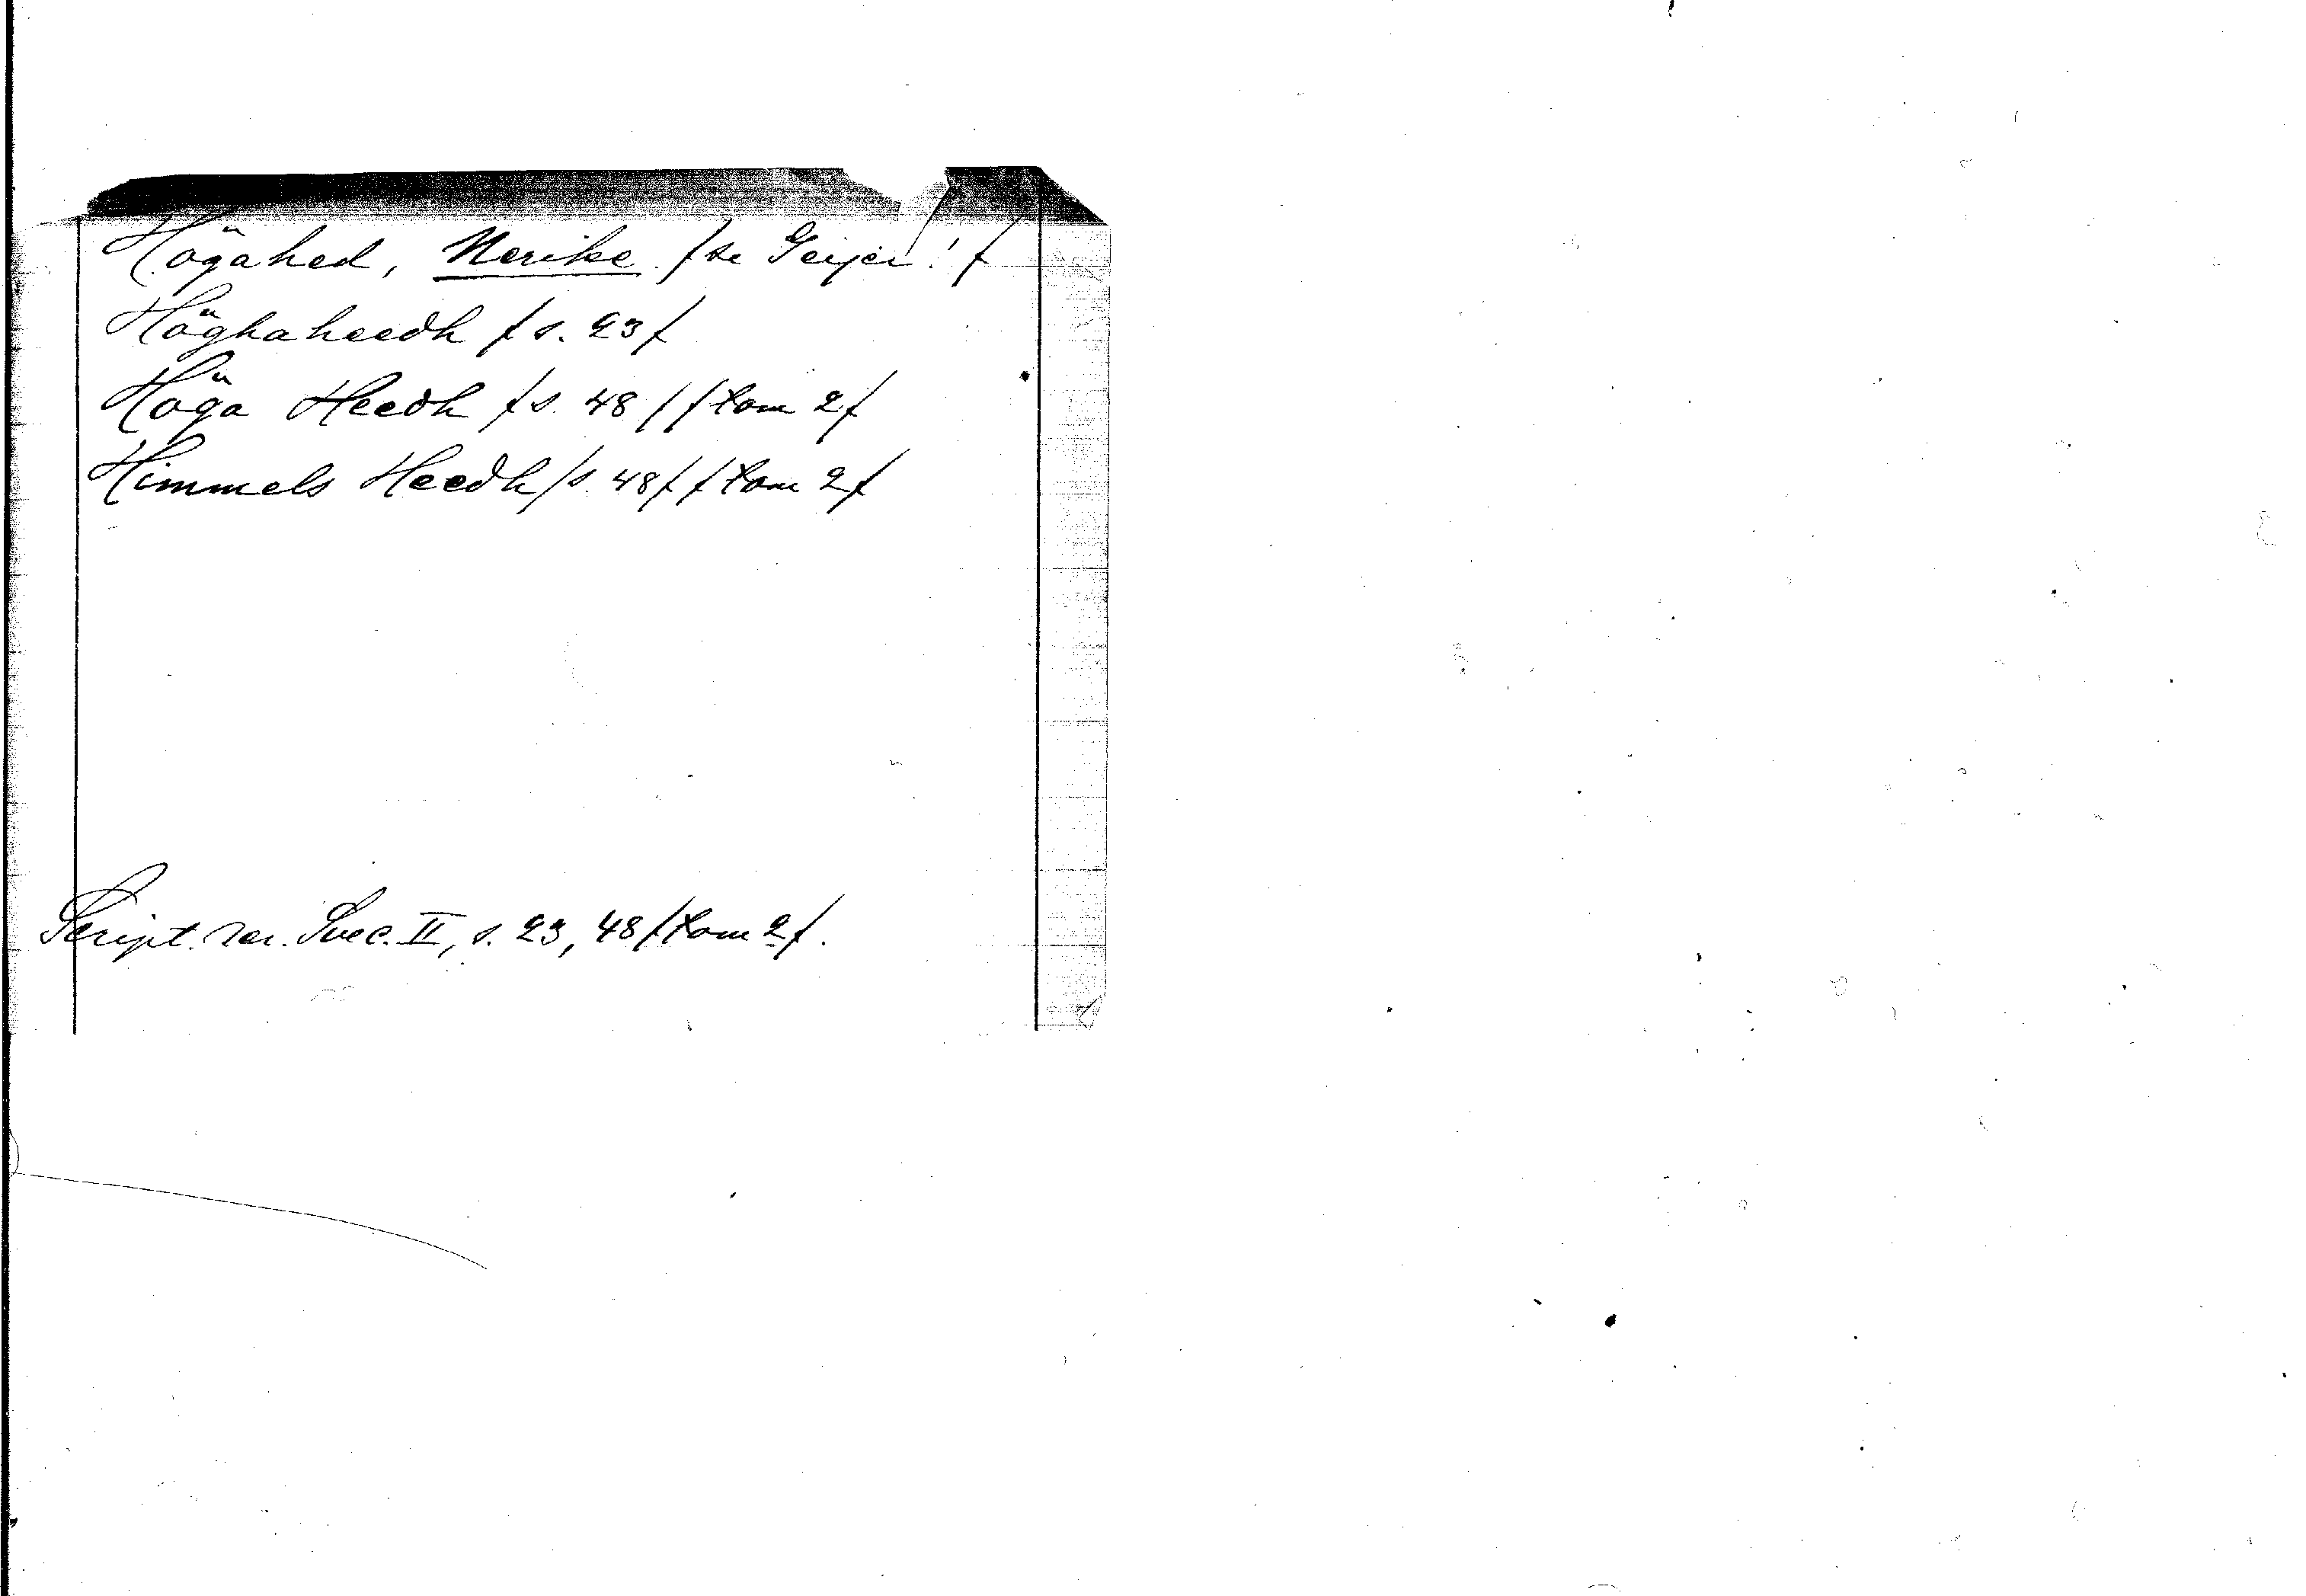 Högahed, Nerike /se Geijer!/
Höghaheedh /s. 23/
Höga Heedh /s. 48/ /tom 2/
Himmels Heedh /s. 48/ /tom 2/
Script. rer. Svec. II, s. 23, 48 /tom 2/.